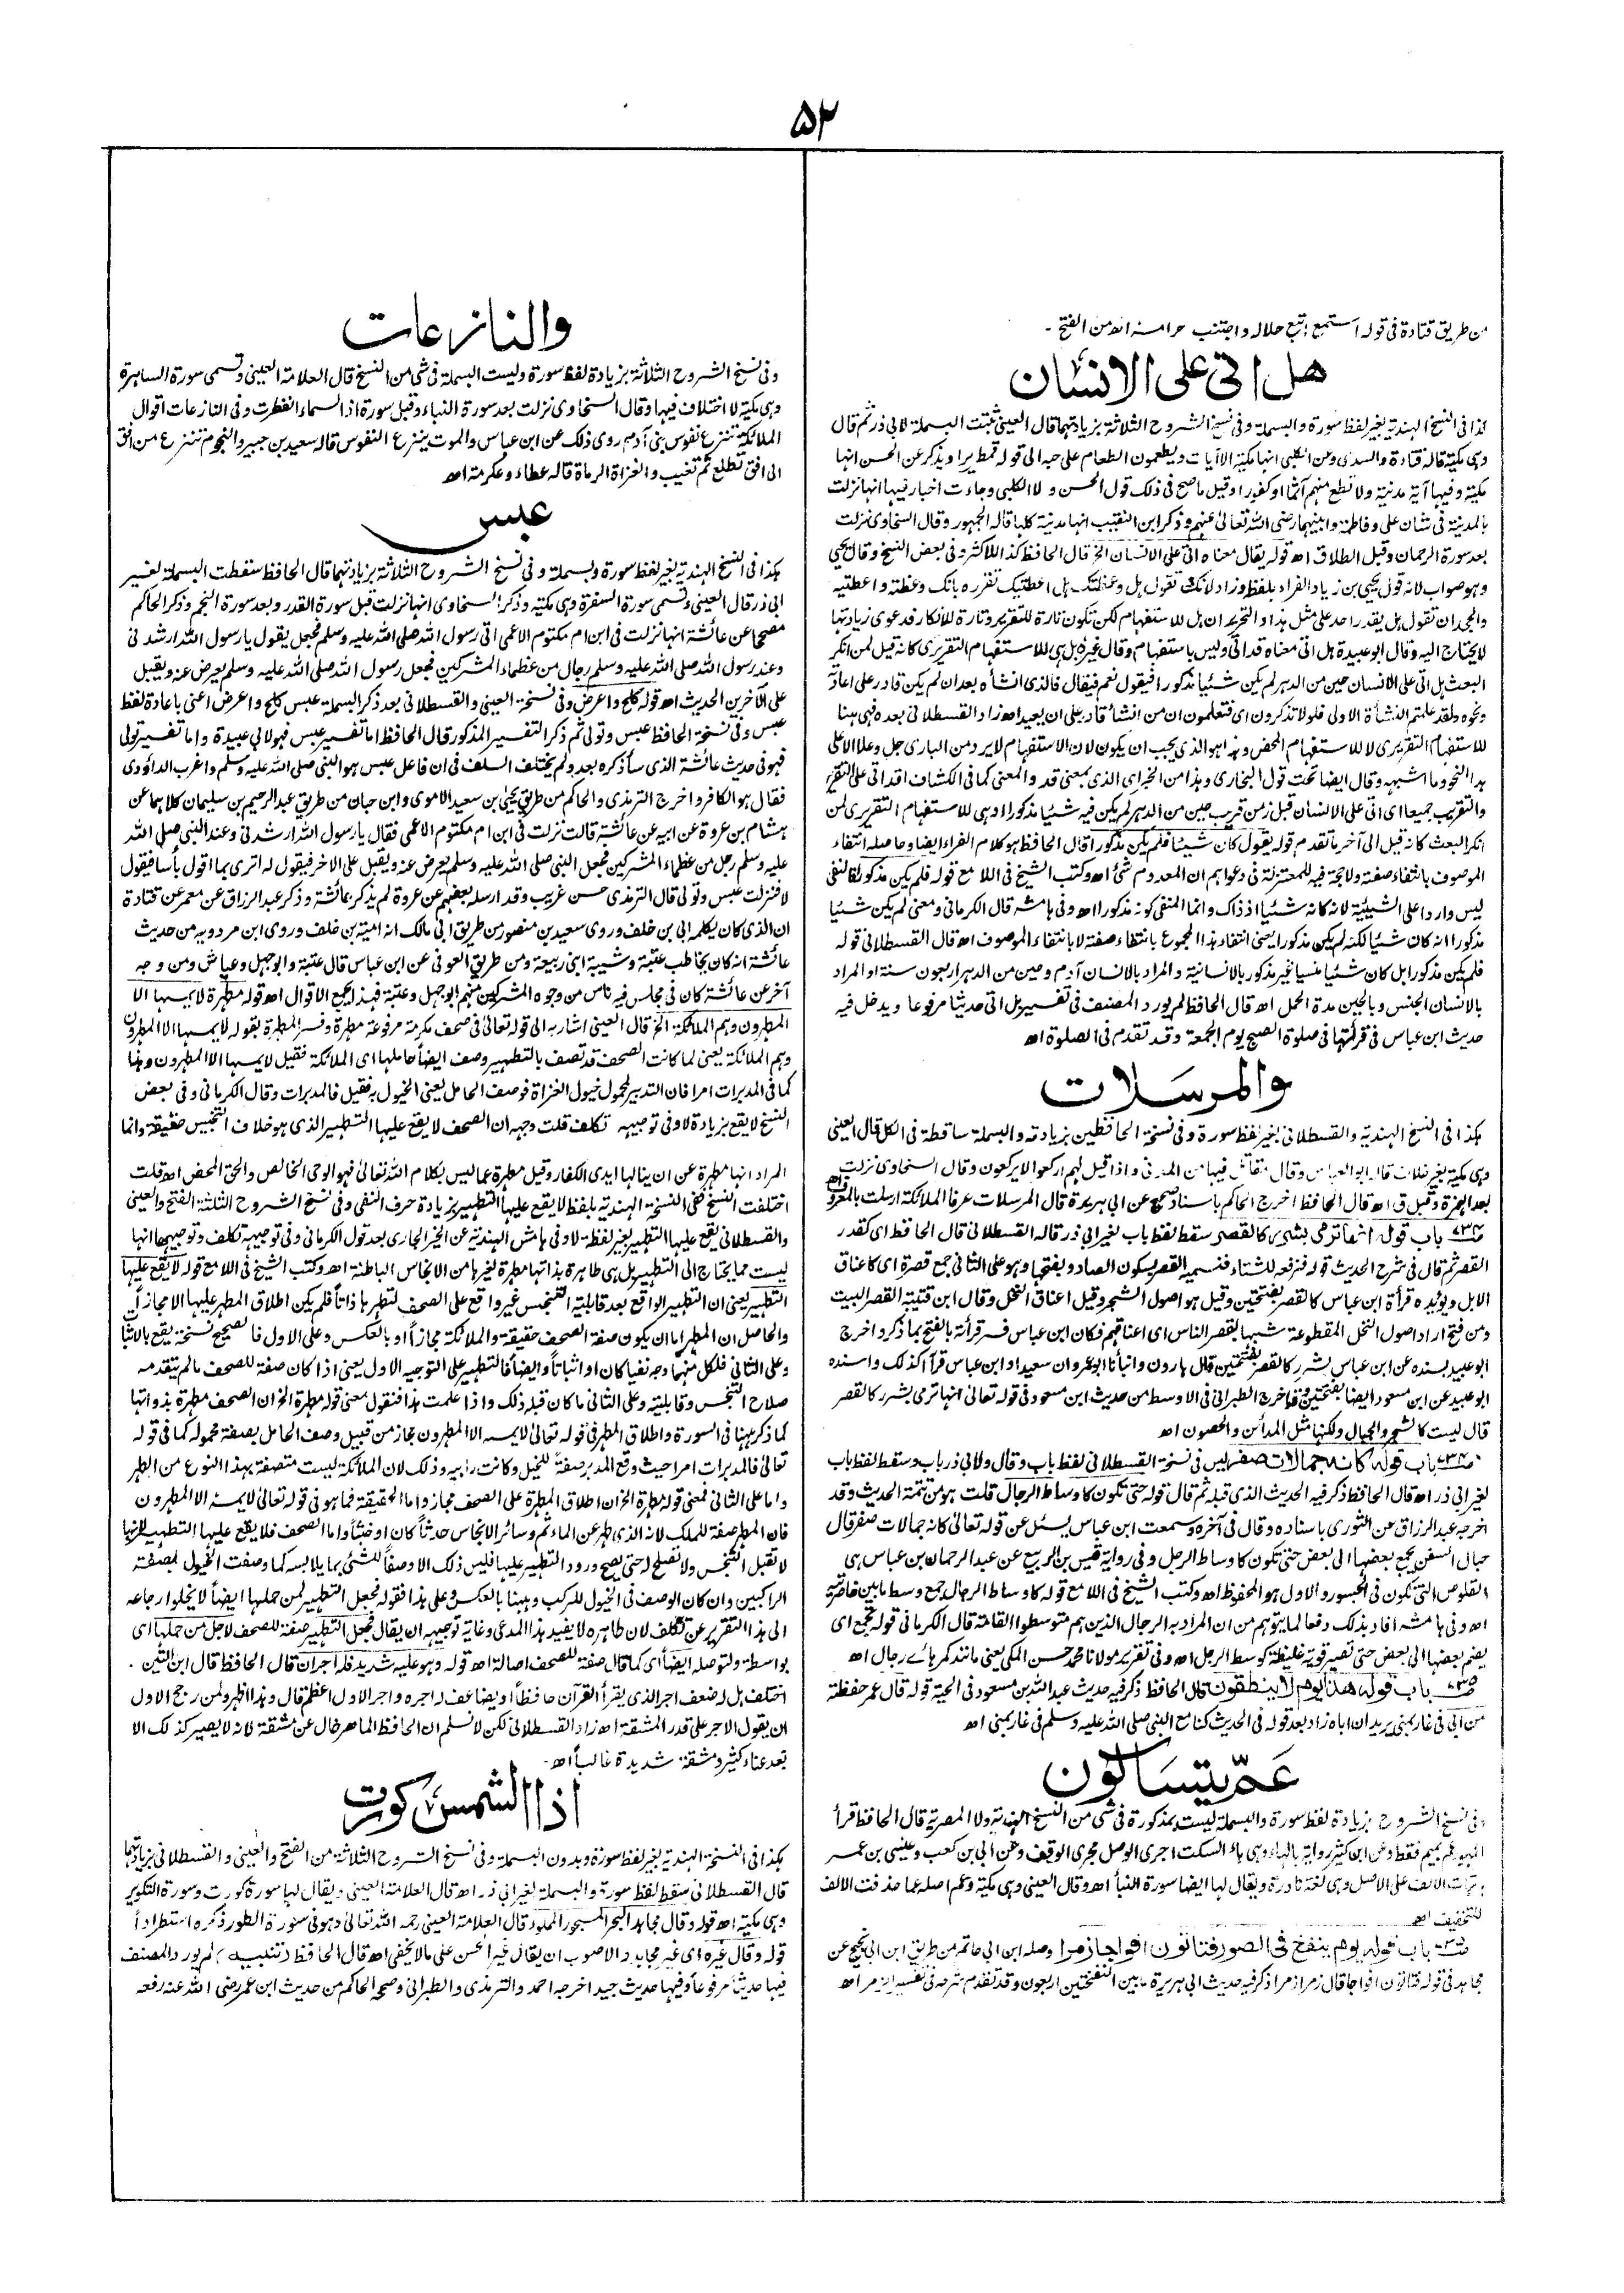 ۵۲
من طريق قتادة فى قوله استمع اتبع حلاله واجتنب حرامه اھ من الفتح -
هل اتى على الانسان
كذا فى النسخ الهندية بغير لفظ سورة والبسملة وفى نسخ الشروح الثلاثة بزيادتهما قال العينى ثبتت البسملة لابى ذر ثم قال
وهى مكية قاله قتادة والسدى وعن الكلبى انها مكية الا آيات ويطعمون الطعام على حبه الى قوله قمطريرا ويذكر عن الحسن انها
مكية وفيها آية مدنية ولا تطع منهم آثما او كفورا وقيل ما صح فى ذلك قول الحسن ولا الكلبى وجاءت اخبار فيها انها نزلت
بالمدينة فى شان على وفاطمة وابنيهما رضى الله تعالى عنهم وذكر ابن النقيب انها مدنية كلها قاله الجمهور وقال السخاوى نزلت
بعد سورة الرحمان وقبل الطلاق اھ قوله يقال معناه اتى على الانسان الخ قال الحافظ كذا للاكثر وفى بعض النسخ وقال يحيى
وهو صواب لانه قول يحيى بن زياد الفراء بلفظه وزاد لانك تقول هل وعظتك هل اعطيتك تقرره بانك وعظته واعطيته
والجحد ان تقول هل يقدر احد على مثل هذا و التحرير ان هل للاستفهام لكن تكون تارة للتقرير وتارة للانكار فدعوى زيادتها
لا يحتاج اليه وقال ابو عبيدة هل اتى معناه قد اتى وليس باستفهام وقال غيره بل هى للاستفهام التقريرى كانه قيل لمن انكر
البعث هل اتى على الانسان حين من الدهر لم يكن شيئا مذكورا فيقول نعم فيقال فالذى انشأه بعد ان لم يكن قادر على اعادته
ونحوه ولقد علمتم النشأة الاولى فلولا تذكرون اى فتعلمون ان من انشأ قادر على ان يعيد اھ زاد القسطلانى بعده فهى هنا
للاستفهام التقريرى لا للاستفهام المحض وهذا هو الذى يجب ان يكون لان الاستفهام لا يرد من البارى جل وعلا الا على
هذا النحو وما اشبهه وقال ايضا تحت قول البخارى وهذا من الخبر اى الذى بمعنى قد والمعنى كما فى الكشاف اقد اتى على التقرير
والتقريب جميعا اى اتى على الانسان قبل زمن قريب حين من الدهر لم يكن فيه شيئا مذكورا اھ وهى للاستفهام التقريرى لمن
انكر البعث كانه قيل الى آخر ما تقدم قوله يقول كان شيئا فلم يكن مذكورا قال الحافظ هو كلام الفراء ايضا وحاصله انتفاء
الموصوف بانتفاء صفته ولا حجة فيه للمعتزلة فى دعواهم ان المعدوم شئ اھ وكتب الشيخ فى اللامع قوله فلم يكن مذكورا فالنفى
ليس واردا على الشيئية لانه كانه شيئا اذ ذاك وانما المنفى كونه مذكورا اھ وفى هامشه قال الكرمانى ومعنى لم يكن شيئا
مذكورا انه كان شيئا لكنه لم يكن مذكورا يعنى انتفاء هذا المجموع بانتفاء صفته لا بانتفاء الموصوف اھ قال القسطلانى قوله
فلم يكن مذكورا بل كان شيئا منسيا غير مذكور بالانسانية و المراد بالانسان آدم وحين من الدهر اربعون سنة او المراد
بالانسان الجنس وبالحين مدة الحمل اھ قال الحافظ لم يورد المصنف فى تفسير هل اتى حديثا مرفوعا ويدخل فيه
حديث ابن عباس فى قراءتها فى صلوة الصبح يوم الجمعة وقد تقدم فى الصلوة اھ
والمرسلات
هكذا فى النسخ الهندية والقسطلانى بغير لفظ سورة وفى نسخة الحافظين بزيادته والبسملة ساقطة فى الكل قال العينى
وهى مكية بغير خلاف قاله ابو العباس وقال مقاتل فيها من المدنى واذا قيل لهم اركعوا لا يركعون وقال السخاوى نزلت
بعد الهمزة وقبل ق اھ قال الحافظ اخرج الحاكم باسناد صحيح عن ابى هريرة قال المرسلات عرفا الملائكة ارسلت بالمعروف اھ
باب قوله انها ترمى بشرر كالقصر سقط لفظ باب لغير ابى ذر قاله القسطلانى قال الحافظ اى كقدر
القصر ثم قال فى شرح الحديث قوله فنرفعه للشتاء فنسميه القصر بسكون الصاد وبفتحها وهو على الثانى جمع قصرة اى كاعناق
الابل ويؤيده قرأة ابن عباس كالقصر بفتحتين وقيل هو اصول الشجر وقيل اعناق النخل وقال ابن قتيبة القصر البيت
ومن فتح اراد اصول النخل المقطوعة شبهها بقصر الناس اى اعناقهم فكان ابن عباس فسر قرأته بالفتح بما ذكر واخرج
ابو عبيد بسنده عن ابن عباس بشرر كالقصر بفتحتين قال هارون وانبأنا ابو عمرو ان سعيدا و ابن عباس قرآ كذلك واسنده
ابو عبيد عن ابن مسعود ايضا بفتحتين واخرج الطبرانى فى الاوسط من حديث ابن مسعود فى قوله تعالى انها ترمى بشرر كالقصر
قال ليست كالشجر والجبال ولكنها مثل المدائن والحصون اھ
باب قوله كانه جمالات صفر ليس فى نسخة القسطلانى لفظ باب وقال ولابى ذر باب وسقط لفظ باب
لغير ابى ذر اھ قال الحافظ ذكر فيه الحديث الذى قبله ثم قال قوله حتى تكون كاوساط الرجال قلت هو من تتمة الحديث وقد
اخرجه عبد الرزاق عن الثورى باسناده وقال فى آخره وسمعت ابن عباس يسئل عن قوله تعالى كانه جمالات صفر قال
حبال السفن يجمع بعضها الى بعض حتى تكون كاوساط الرجل وفى رواية قيس بن الربيع عن عبد الرحمان بن عباس هى
القلوص التى تكون فى الجسور والاول هو المحفوظ اھ وكتب الشيخ فى اللامع قوله كاوساط الرجال جمع وسط مابين خاصرتيه
اھ وفى هامشه افاد بذلك دفعا لما يتوهم من ان المراد به الرجال الذين هم متوسطوا القامة قال الكرمانى قوله تجمع اى
يضم بعضها الى بعض حتى تصير قوية غليظة كوسط الرجل اھ وفى تقرير مولانا محمد حسن المكى يعنى مانند كمرہائے رجال اھ
باب قوله هذا يوم لا ينطقون قال الحافظ ذكر فيه حديث عبد الله بن مسعود فى الحية قوله قال عمر حفظته
من ابى فى غار بمنى يريد ان اباه زاد بعد قوله فى الحديث كنا مع النبى صلى الله عليه وسلم فى غار بمنى اھ
عمّ يتسالون
وفى نسخ الشروح بزيادة لفظ سورة والبسملة ليست بمذكورة فى شى من النسخ الهندية ولا المصرية قال الحافظ قرأ
الجمهور عم بميم فقط وعن ابن كثير رواية بالهاء وهى هاء السكت اجرى الوصل مجرى الوقف وعن ابى بن كعب وعيسى بن عمر
باثبات الالف على الاصل وهى لغة نادرة ويقال لها ايضا سورة النبأ اھ وقال العينى وهى مكية وعم اصله عما حذفت الالف
للتخفيف اھ
باب قوله يوم ينفخ فى الصور فتاتون افواجا زمرا وصله ابن ابى حاتم من طريق ابن ابى نجيح عن
مجاهد فى قوله فتاتون افواجا قال زمرا زمرا ذكر فيه حديث ابى هريرة ما بين النفختين اربعون وقد تقدم شرحه فى تفسير الزمر اھ
والنازعات
وفى نسخ الشروح الثلاثة بزيادة لفظ سورة وليست البسملة فى شى من النسخ قال العلامة العينى وتسمى سورة الساهرة
وهى مكية لا اختلاف فيها وقال السخاوى نزلت بعد سورة النباء وقبل سورة اذا السماء انفطرت وفى النازعات اقوال
الملائكة تنزع نفوس بنى آدم روى ذلك عن ابن عباس والموت ينزع النفوس قاله سعيد بن جبير والنجوم تنزع من افق
الى افق تطلع ثم تغيب والغزاة الرماة قاله عطاء وعكرمة اھ
عبس
هكذا فى النسخ الهندية بغير لفظ سورة وبسملة وفى نسخ الشروح الثلاثة بزيادتهما قال الحافظ سقطت البسملة لغير
ابى ذر قال العينى وتسمى سورة السفرة وهى مكية وذكر السخاوى انها نزلت قبل سورة القدر وبعد سورة النجم وذكر الحاكم
مصححا عن عائشة انها نزلت فى ابن ام مكتوم الاعمى اتى رسول الله صلى الله عليه وسلم فجعل يقول يا رسول الله ارشدنى
وعند رسول الله صلى الله عليه وسلم رجال من عظماء المشركين فجعل رسول الله صلى الله عليه وسلم يعرض عنه ويقبل
على الآخرين الحديث اھ قوله كلح واعرض وفى نسخة العينى والقسطلانى بعد ذكر البسملة عبس كلح واعرض اعنى باعادة لفظ
عبس وفى نسخة الحافظ عبس وتولى ثم ذكر التفسير المذكور قال الحافظ اما تفسير عبس فهو لابى عبيدة واما تفسير تولى
فهو فى حديث عائشة الذى سأذكره بعد ولم يختلف السلف فى ان فاعل عبس هو النبى صلى الله عليه وسلم واغرب الداؤدى
فقال هو الكافر واخرج الترمذى والحاكم من طريق يحيى بن سعيد الاموى وابن حبان من طريق عبد الرحيم بن سليمان كلاهما عن
هشام بن عروة عن ابيه عن عائشة قالت نزلت فى ابن ام مكتوم الاعمى فقال يا رسول الله ارشدنى وعند النبى صلى الله
عليه وسلم رجل من عظماء المشركين فجعل النبى صلى الله عليه وسلم يعرض عنه ويقبل على الاخر فيقول له اترى بما اقول بأسا فيقول
لا فنزلت عبس وتولى قال الترمذى حسن غريب وقد ارسله بعضهم عن عروة لم يذكر عائشة وذكر عبد الرزاق عن معمر عن قتادة
ان الذى كان يكلمه ابى بن خلف وروى سعيد بن منصور من طريق ابى مالك انه امية بن خلف وروى ابن مردويه من حديث
عائشة انه كان يخاطب عتبة وشيبة ابنى ربيعة ومن طريق العوفى عن ابن عباس قال عتبة وابو جهل وعياش ومن وجه
آخر عن عائشة كان فى مجلس فيه ناس من وجوه المشركين منهم ابو جهل وعتبة فهذا يجمع الاقوال اھ قوله مطهرة لا يمسها الا
المطهرون وهم الملائكة الخ قال العينى اشار به الى قوله تعالى فى صحف مكرمة مرفوعة مطهرة وفسر المطهرة بقوله لا يمسها الا المطهرون
وهم الملائكة يعنى لما كانت الصحف قد تصف بالتطهير وصف ايضا حاملها اى الملائكة فقيل لا يمسها الا المطهرون وهذا
كما فى المدبرات امرا فان التدبير لمحمول خيول الغزاة فوصف الحامل يعنى الخيول به فقيل فالمدبرات وقال الكرمانى وفى بعض
النسخ لا يقع بزيادة لا وفى توجيهه تكلف قلت وجهه ان الصحف لا يقع عليها التطهير الذى هو خلاف التنجيس حقيقة وانما
المراد انها مطهرة عن ان ينالها ايدى الكفار وقيل مطهرة عما ليس بكلام الله تعالى فهو الوحى الخالص والحق المحض اھ قلت
اختلفت النسخ ففى النسخة الهندية بلفظ لا يقع عليها التطهير بزيادة حرف النفى وفى نسخ الشروح الثلثة الفتح والعينى
والقسطلانى يقع عليها التطهير بغير لفظة لا وفى هامش الهندية عن الخير الجارى بعد قول الكرمانى وفى توجيهه تكلف وتوجيهها انها
ليست مما يحتاج الى التطهير بل هى طاهرة بذاتها مطهرة لغيرها من الانجاس الباطنة اھ وكتب الشيخ فى اللامع قوله لا يقع عليها
التطهير يعنى ان التطهير الواقع بعد قابلية التنجس غير واقع على الصحف لتطهرها ذاتا فلم يكن اطلاق المطهر عليها الا مجازا
والحاصل ان المطهر اما ان يكون صفة الصحف حقيقة والملائكة مجازا او بالعكس وعلى الاول فالصحيح نسخة يقع بالاثبات
وعلى الثانى فلكل منهما وجه نفيا كان او اثباتا وايضا فالتطهير على التوجيه الاول يعنى اذا كان صفة للصحف مالم يتقدمه
صلاح التنجس وقابليته وعلى الثانى ما كان قبله ذلك واذا علمت هذا فنقول معنى قوله مطهرة الخ ان الصحف مطهرة بذواتها
كما ذكر ههنا فى السورة واطلاق المطهر فى قوله تعالى لا يمسه الا المطهرون مجاز من قبيل وصف الحامل بصفة محموله كما فى قوله
تعالى فالمدبرات امرا حيث وقع المدبر صفة للخيل وكانت راكبيه وذلك لان الملائكة ليست متصفة بهذا النوع من الطهر
واما على الثانى فمعنى قوله مطهرة الخ ان اطلاق المطهرة على الصحف مجاز واما الحقيقة فما هو فى قوله تعالى لا يمسه الا المطهرون
فان المطهر صفة للملك لانه الذى طهر عن الماء ثم وسائر الانجاس حدثا كان او خبثا واما الصحف فلا يقع عليها التطهير لانها
لا تقبل التنجس ولا تصلح له حتى يصح ورود التطهير عليها فليس ذلك الا وصفا للشئى بما يلابسه كما وصفت الخيول بصفة
الراكبين وان كان الوصف فى الخيول للمركب وههنا بالعكس وعلى هذا فقوله فجعل التطهير لمن حملها ايضا لا يخلو ارجاعه
الى هذا التقرير عن تكلف لان ظاهره لا يفيد هذا المدعى وغاية توجيهه ان يقال فجعل التطهير صفة للصحف لاجل من حملها اى
بواسطة ولتوصله ايضا اى كما قال صفة للصحف اصالة اھ قوله وهو عليه شديد فله اجران قال الحافظ قال ابن التين .
اختلف هل له ضعف اجر الذى يقرأ القرآن حافظا او يضاعف له اجره واجر الاول اعظم قال وهذا اظهر ولمن رجح الاول
ان يقول الاجر على قدر المشقة اھ زاد القسطلانى لكن لا نسلم ان الحافظ الماهر خال عن مشقة لانه لا يصير كذلك الا
بعد عناء كثير ومشقة شديدة غالبا اھ -
اذا الشمس كورت
هكذا فى النسخة الهندية بغير لفظ سورة وبدون البسملة وفى نسخ الشروح الثلاثة من الفتح والعينى والقسطلانى بزيادتهما
قال القسطلانى سقط لفظ سورة والبسملة لغير ابى ذر اھ قال العلامة العينى ويقال لها سورة كورت وسورة التكوير
وهى مكية اھ قوله وقال مجاهد البحر المسجور المملوء قال العلامة العينى رحمه الله تعالى وهو فى سورة الطور ذكره استطرادا
قوله وقال غيره اى غير مجاهد و الاصوب ان يقال غير الحسن على ما لا يخفى اھ قال الحافظ (تنبيه) لم يورد المصنف
فيها حديثا مرفوعا وفيها حديث جيد اخرجه احمد والترمذى والطبرانى وصححه الحاكم من حديث ابن عمر رضى الله عنه رفعه